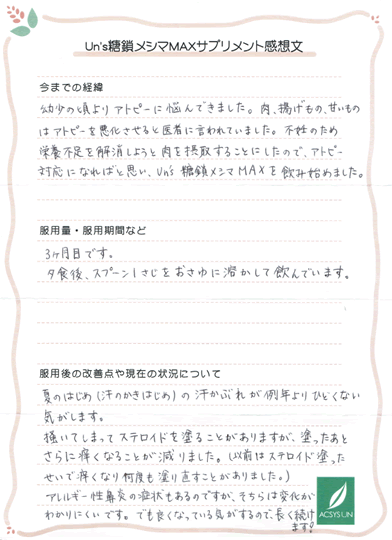 Un's糖鎖メシマMAXサプリメント感想文
今までの経緯
幼少の頃よりアトピーに悩んできました。肉、揚げもの、甘いもの
はアトピーを悪化させると医者に言われていました。不妊のため
栄養不足を解消しようと肉を摂取することにしたので、アトピー
対応になればと思い、Un's 糖鎖メシマMAXを飲み始めました。
服用量・服用期間など
3ヶ月目です。
夕食後、スプーン1さじをおさゆに溶かして飲んでいます。
服用後の改善点や現在の状況について
夏のはじめ(汗のかきはじめ)の汗かぶれが例年よりひどくない
気がします。
掻いてしまってステロイドを塗ることがありますが、塗ったあと
さらに痒くなることが減りました。(以前はステロイド塗った
せいで痒くなり何度も塗り直すことがありました。)
アレルギー性鼻炎の症状もあるのですが、そちらは変化が
わかりにくいです。でも良くなっている気がするので、長く続け
ます!
ACSYSUN